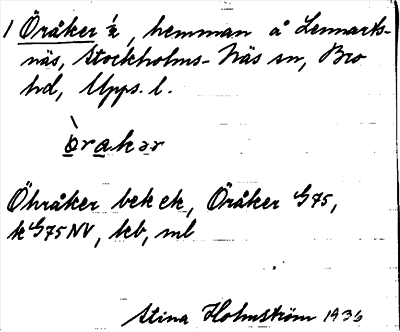 1 Öråker ½, hemman å Lennarts-
näs, Stockholms-Näs sn, Bro
hd, Upps. l.
ò̱ra̱kər
Öhråker bek ek, Öråker G75,
k G75 NV, kb, ml
Stina Holmström 1936